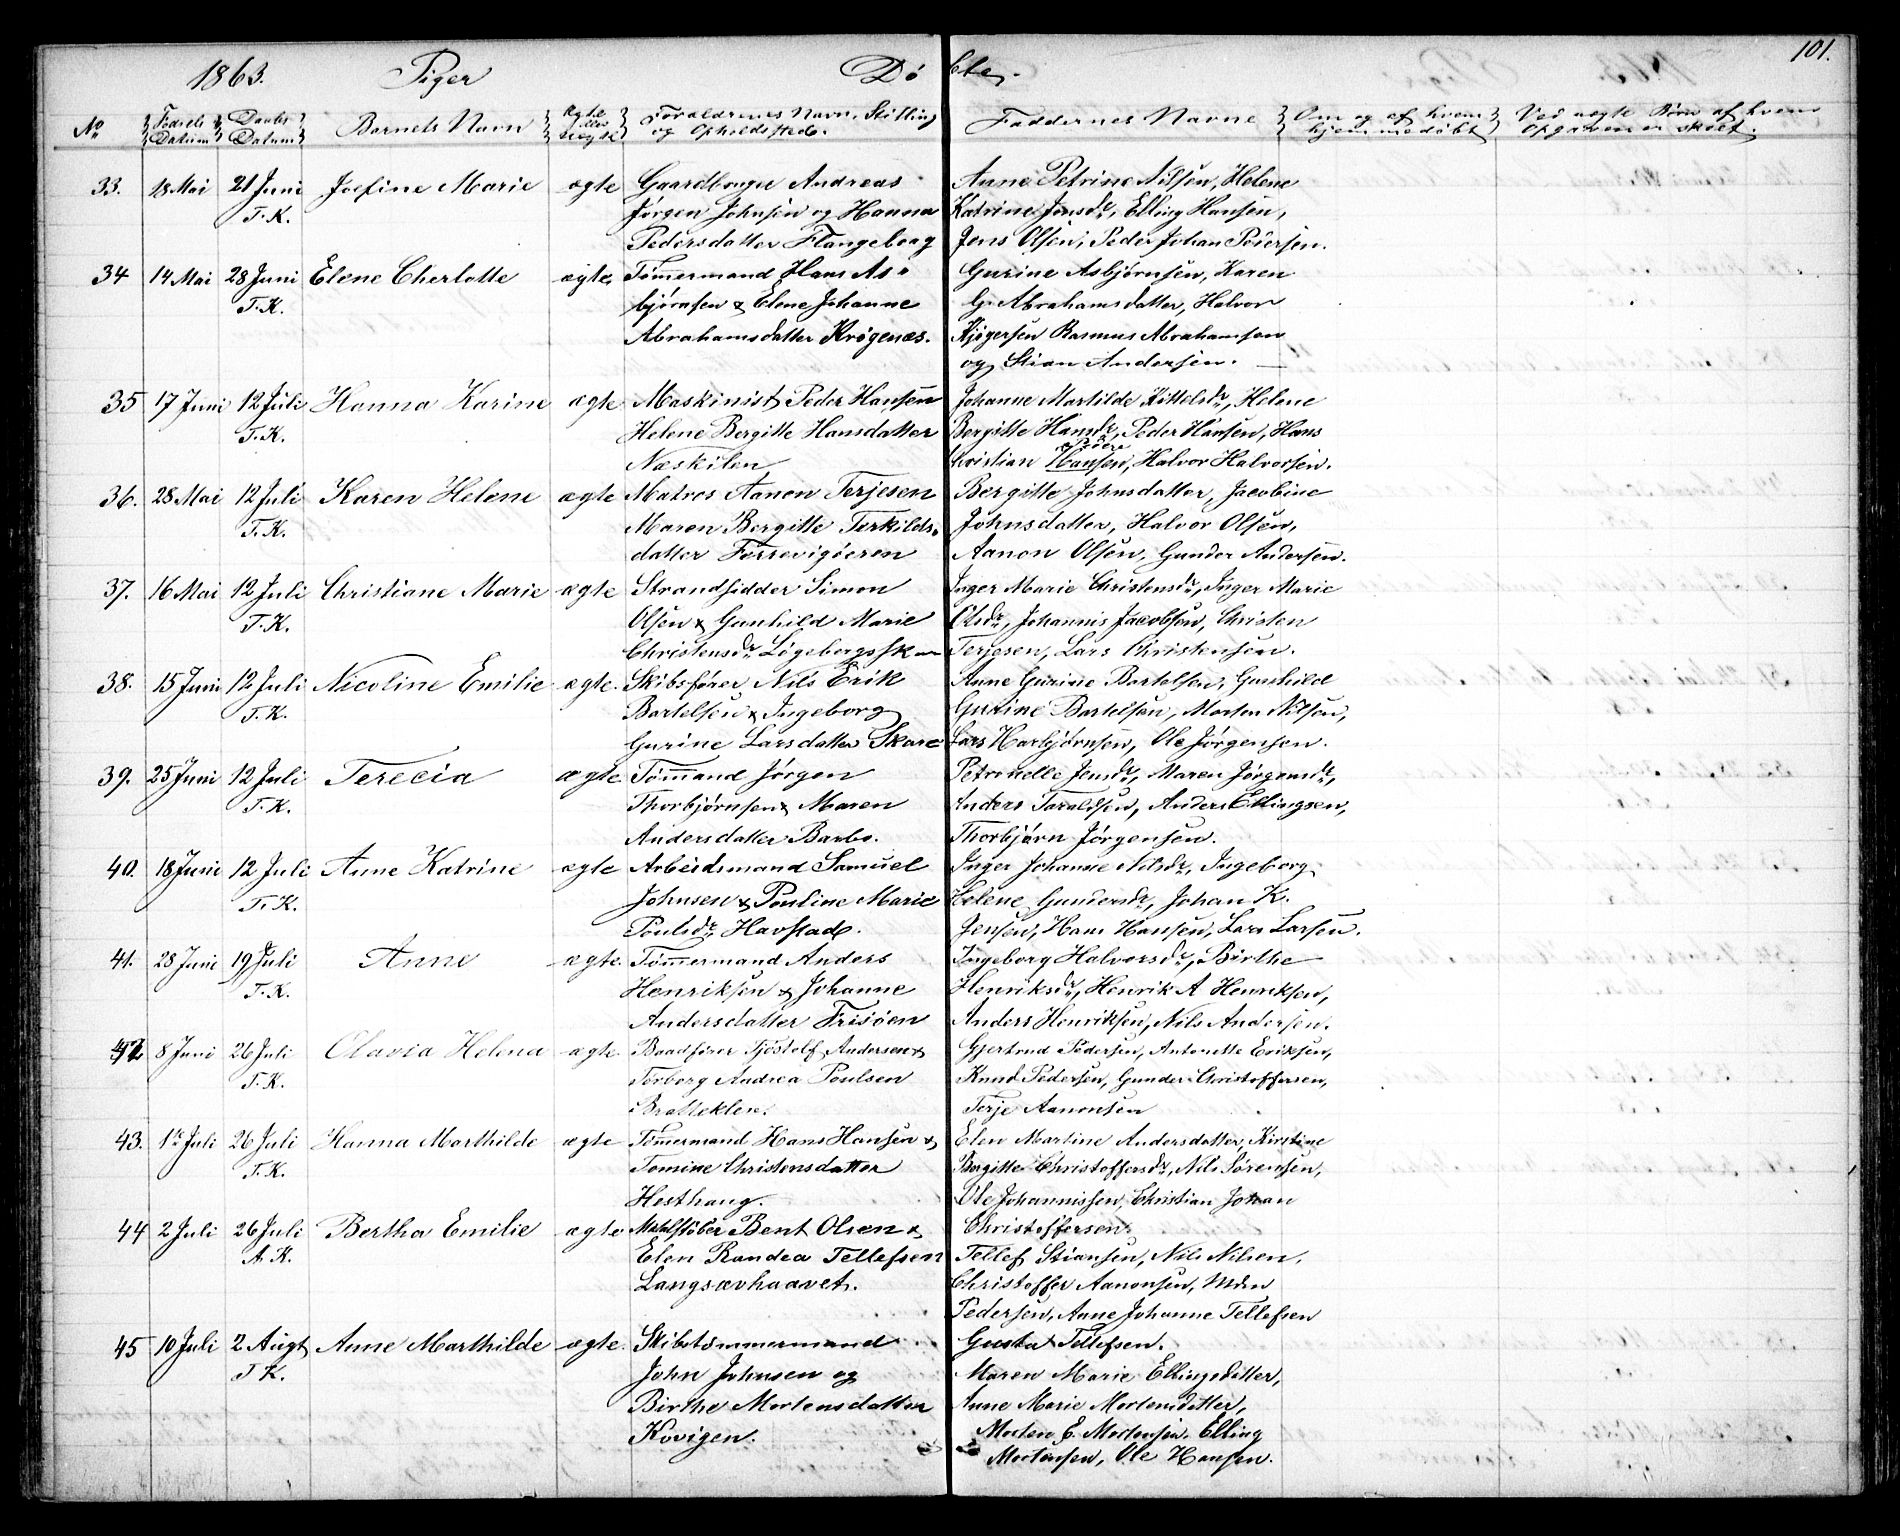 1863. Piger Døbte. 101.
No Fødsels Datum Daabs Datum Barnets Navn Ægte eller Uægte Forældrenes Navn, Stilling og Opholdssted. Faddernes Navne Om og af hvem hjemmedøbt Ved uægte Børn af hvem Opgaven er skeet.
33. 18 Mai 21 Juni Josefine Marie ægte Gaardbruger Andreas Anne Petrine Nilsen, Helene
T.K. Jørgen Johnsen og Hanna Katrine Jensdr, Elling Hansen,
Pedersdatter Flangeborg Jens Olsen, Peder Johan Pedersen.
34 14 Mai 28 Juni Elene Cherlotte ægte Tømermand Hans As- Gurine Asbjørnsen, Karen
T.K. bjørnsen & Elene Johanne G. Abrahamsdatter, Halvor
Abrahamsdatter Krøgenæs. Kjøgersen Rasmus Abrahamsen
og Stian Andersen. —
35 17 Juni 12 Juli Hanna Karine ægte Maskinist Peder Hansen Johanne Martilde Kittelsdr, Helene
T.K. Helene Bergitte Hansdatter Bergitte Hansdr, Peder Hansen, Hans
Næskilen Christian Hansen, Halvor Halvorsen.
36. 28 Mai 12 Juli Karen Helene ægte Matros Aanon Terjesen Bergitte Johnsdatter, Jacobine
T.K. Maren Bergitte Terkilds- Johnsdatter, Halvor Olsen,
datter Færrevigøeren Aanon Olsen, Gunder Andersen.
37. 16 Mai 12 Juli Christiane Marie ægte Strandsidder Simon Inger Marie Christensdr, Inger Marie
T.K. Olsen & Gunhild Marie Olsdr, Johannis Jacobsen, Christen
Christensdr Løgebergssk Terjesen, Lars Christensen.
38. 15 Juni 12 Juli Nicoline Emilie ægte. Skibsfører Nils Erik Anne Gurine Bartelsen, Gunhild
T.K. Bartelsen & Ingeborg Gurine Bartelsen, Morten Nilsen,
Gurine Larsdatter Skare Lars Harbjørnsen, Ole Jørgensen.
39. 25 Juni 12 Juli Terecia ægte Tømmand Jørgen Petronelle Jensdr, Maren Jørgensdr,
T.K. Thorbjørnsen & Maren Anders Taraldsen, Anders Ellingsen,
Andersdatter Barbo. Thorbjørn Jørgensen.
40. 18 Juni 12 Juli Anne Katrine ægte Arbeidsmand Samuel Inger Johanne Nilsdr, Ingeborg
T.K. Johnsen & Pouline Marie Helene Gundersdr, Johan K.
Poulsdr Havstad. Jensen, Hans Hansen, Lars Larsen.
41. 28 Juni 19 Juli Anne ægte. Tømmermand Anders Ingeborg Halvorsdr, Birthe
T.K. Henriksen & Johanne Henriksdr, Henrik A Henriksen,
Andersdatter Frisøen Anders Henriksen, Nils Andersen.
42 8 Juni 26 Juli Olavia Helena ægte Baadfører Tjøstolf Andersen & Gjertrud Pedersen, Antonette Eriksen,
T.K. Torborg Andrea Poulsen Knud Pedersen, Gunder Christoffersen,
Bratteklev. Terje Aanonsen
43. 1te Juli 26 Juli Hanna Marthilde ægte Tømmermand Hans Hansen & Elen Martine Andersdatter, Kirstine
T.K. Tomine Christensdatter Bergitte Christoffersdr, Nils Sørensen,
Hesthaug. Ole Johannissen, Christian Johan
44 2 Juli 26 Juli Bertha Emilie ægte Bent Olsen & Christoffersen.
A.K. Elen Randea Tellefsen Tellef Stiansen, Nils Nilsen,
Langsævhaavet. Christoffer Aanonsen,
Pedersen, Anne Johanne Tellefsen
45 10 Juli 2 Augt Anne Marthilde ægte. Skibstømmermand Gusta Tellefsen.
T K. John Johnsen og Maren Marie Ellingsdatter,
Birthe Mortensdatter Anne Marie Mortensdatter,
Kovigen. Morten E. Mortensen, Elling
Mortensen, Ole Hansen.